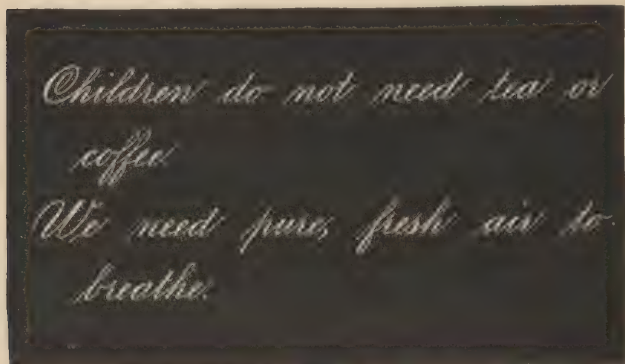 Children do not need tea or
coffee.
We need pure, fresh air to
breathe.